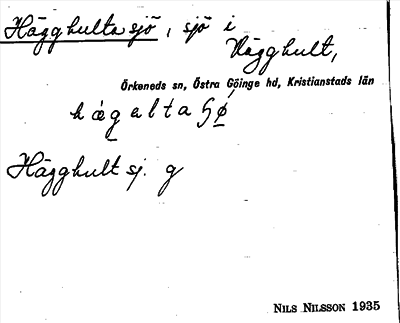 Hägghultasjö, sjö i
Hägghult,
Örkeneds sn, Östra Göinge hd, Kristianstads län
hægalta
Hägghultsj. g
NILS NILSSON 1935